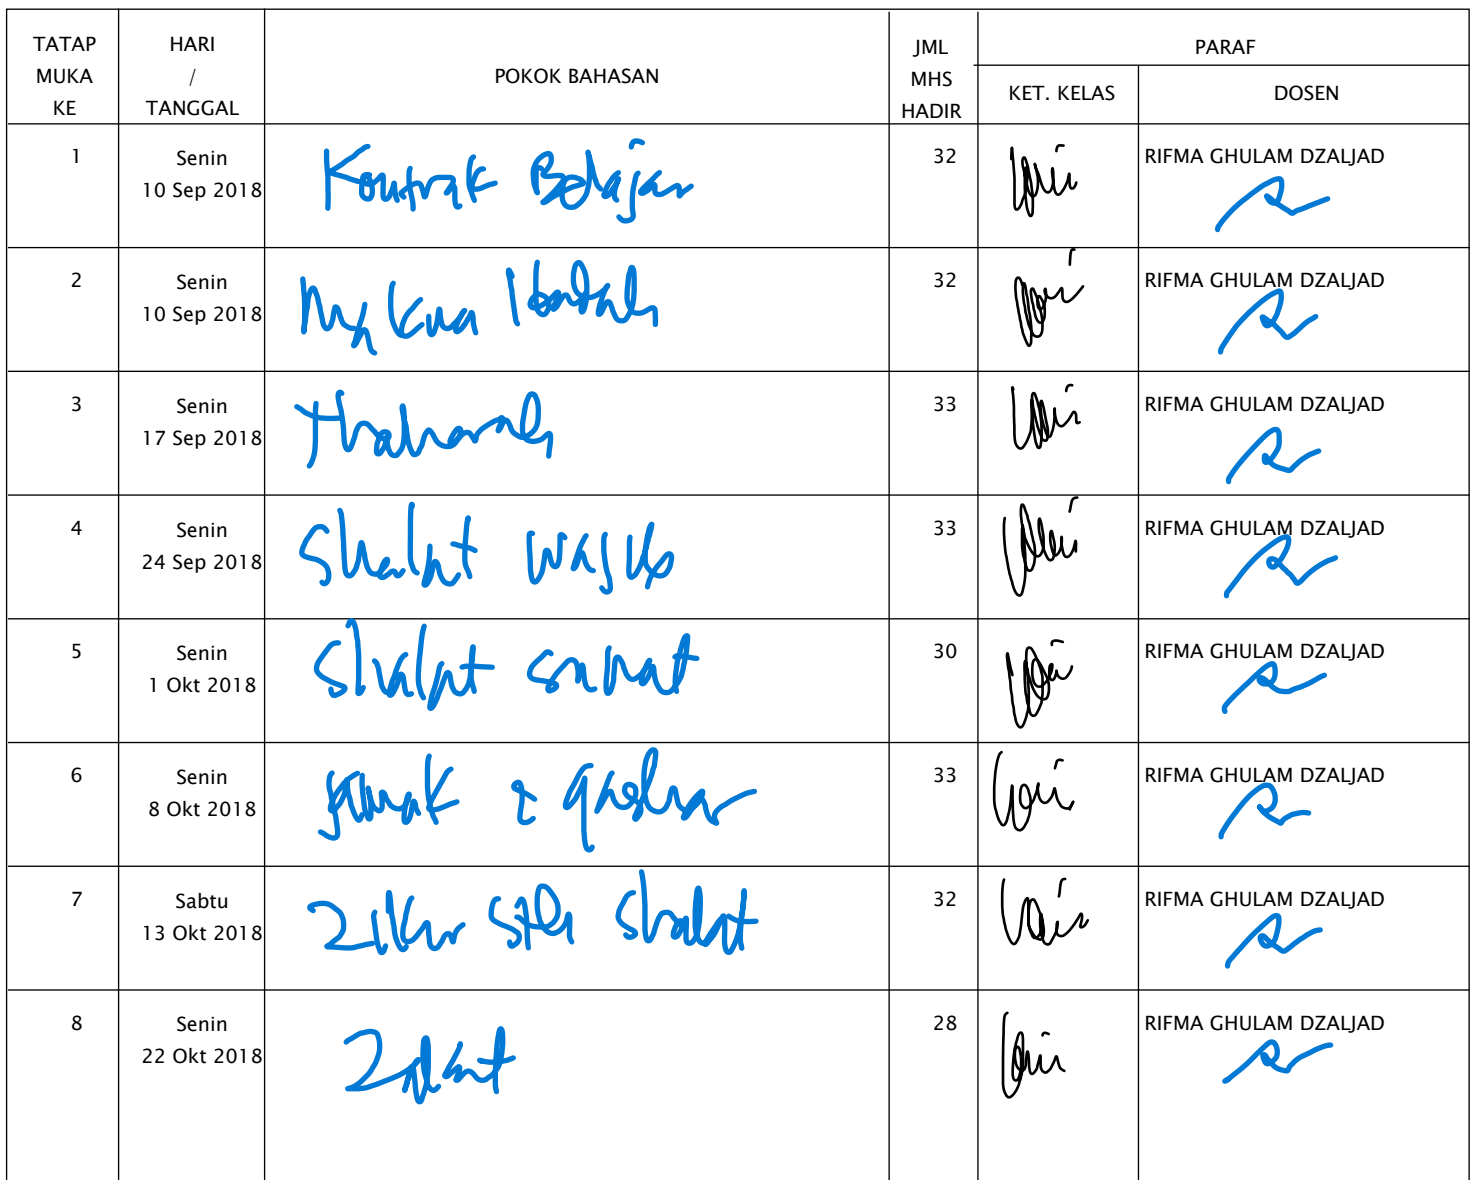 TATAP MUKA KE
HARI / TANGGAL
POKOK BAHASAN
JML MHS HADIR
PARAF
KET. KELAS
DOSEN
1 Senin 10 Sep 2018 Kontrak Belajar 32 RIFMA GHULAM DZALJAD
2 Senin 10 Sep 2018 Ibadah 32 RIFMA GHULAM DZALJAD
3 Senin 17 Sep 2018 Thaharah 33 RIFMA GHULAM DZALJAD
4 Senin 24 Sep 2018 Shalat wajib 33 RIFMA GHULAM DZALJAD
5 Senin 1 Okt 2018 Shalat sunnat 30 RIFMA GHULAM DZALJAD
6 Senin 8 Okt 2018 jamak & qashar 33 RIFMA GHULAM DZALJAD
7 Sabtu 13 Okt 2018 Zikir stlh Shalat 32 RIFMA GHULAM DZALJAD
8 Senin 22 Okt 2018 Zakat 28 RIFMA GHULAM DZALJAD